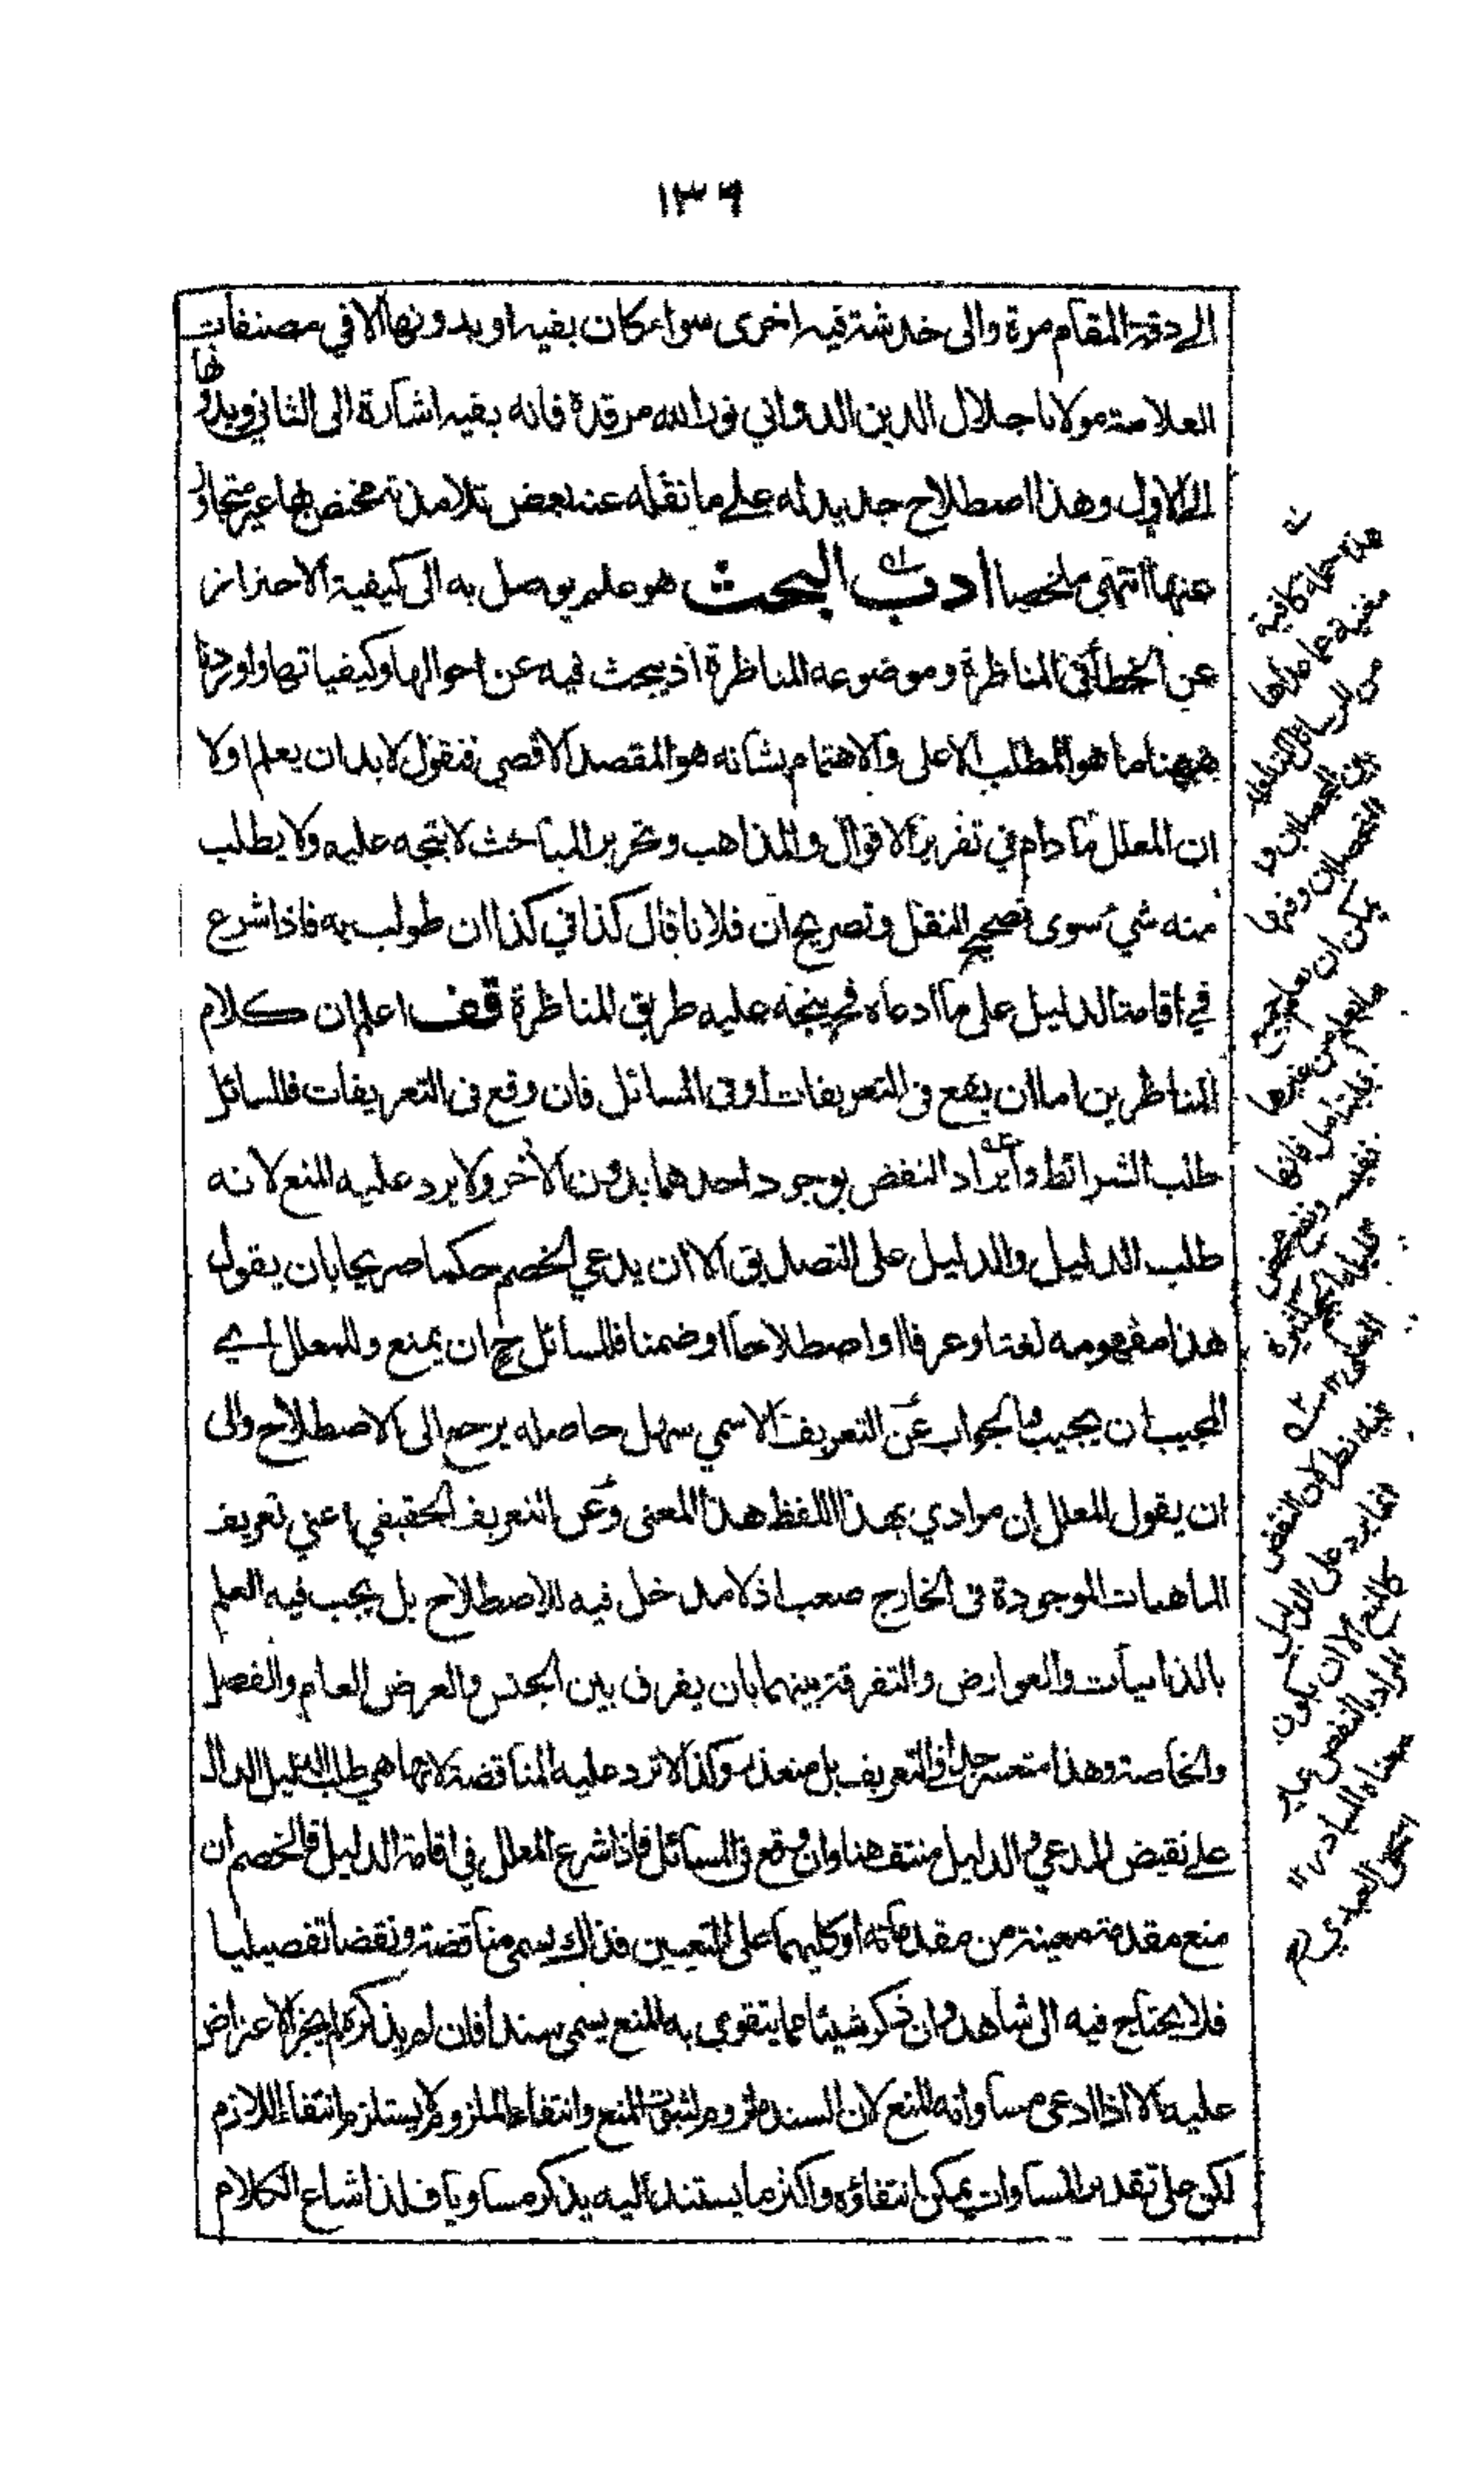 ١٣٩
الى دقة المقام مرة والى خدشة فيه اخرى سواء كان بفيه او بدونها الا في مصنفات
العلامة مولانا جلال الدين الدواني نور الله مرقده فانه بفيه اشارة الى الثاني وبدونها
الى الاول وهذا اصطلاح جديد له على ما نقله عنه بعض تلامذته مختص بها غير متجاوز
عنها انتهى ملخصا ادب البحث هو علم يوصل به الى كيفية الاحتراز
عن الخطأ في المناظرة وموضوعه المناظرة اذ يبحث فيه عن احوالها وكيفياتها واوردنا
ههنا ما هو المطلب الاعلى والاهتمام بشانه هو المقصد الاقصى فنقول لا بد ان يعلم اولا
ان المعلل ما دام في تقرير الاقوال والمذاهب وتحرير المباحث لا يتجه عليه ولا يطلب
منه شيء سوى تصحيح النقل وتصريح ان فلانا قال كذا في كذا ان طولب به فاذا شرع
في اقامة الدليل على ما ادعاه فح يتجه عليه طريق المناظرة قف اعلم ان كلام
المناظرين اما ان يقع في التعريفات او في المسائل فان وقع في التعريفات فللسائل
طلب الشرائط وايراد النقض بوجود احدهما بدون الاخر ولا يرد عليه المنع لانه
طلب الدليل والدليل على التصديق الا ان يدعي الخصم حكما صريحا بان يقول
هذا مفهومه لغة او عرفا او اصطلاحا او ضمنا فللسائل ح ان يمنع وللمعلل اي
المجيب ان يجيب والجواب عن التعريف الاسمي سهل حاصله يرجع الى الاصطلاح والى
ان يقول المعلل ان مرادي بهذا اللفظ هذا المعنى وعن التعريف الحقيقي اعني تعريف
الماهيات الموجودة في الخارج صعب اذ لا مدخل فيه للاصطلاح بل يجب فيه العلم
بالذاتيات والعوارض والتفرقة بينهما بان يفرق بين الجنس والعرض العام والفصل
والخاصة وهذا متعسر جدا في التعريف بل متعذر وكذا لا ترد عليه المناقضة لانها هي طلب الدليل الدال
على نقيض المدعي والدليل منتف هنا وان وقع في المسائل فاذا شرع المعلل في اقامة الدليل فالخصم ان
منع مقدمة معينة من مقدماته او كليهما على التعيين فذلك يسمى مناقضة ونقضا تفصيليا
فلا يحتاج فيه الى شاهد وان ذكر شيئا مما يتقوى به المنع يسمى سندا فان لم يذكره لم يجز الاعتراض
عليه الا اذا ادعى مساواته للمنع لان السند ملزوم لثبوت المنع وانتفاء الملزوم لا يستلزم انتفاء اللازم
لكن على تقدير المساوات يمكن انتفاؤه واكثر ما يستند اليه يذكر مساويا فلذا شاع الكلام
فيه نظر لان النقض
انما يرد على الدليل
كالمنع الا ان يكون
المراد بالنقض غير
معناه المتبادر ١٢